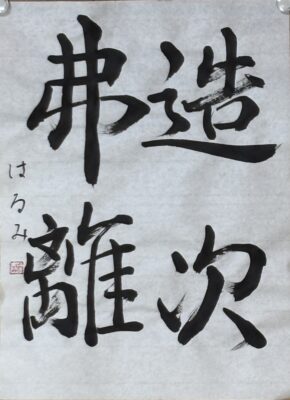 造次
弗離
はるみ